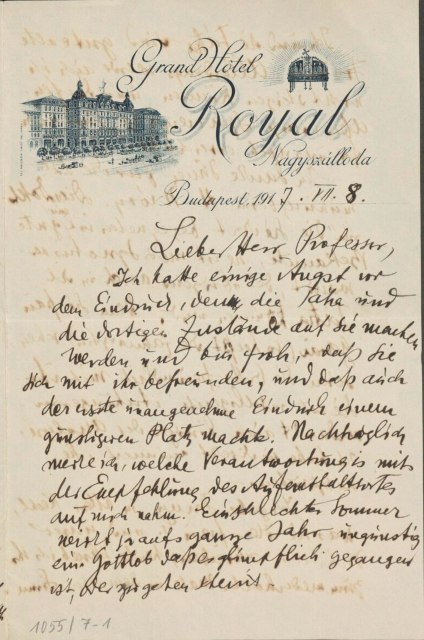 Grand Hôtel
Royal
Nagyszálloda
Budapest, 1917. VII. 8.
Lieber Herr Professor,
Ich hatte einige Angst vor
dem Eindruck, den die Tátra und
die dortigen Zustände auf Sie machen
werden und bin froh, daß Sie
sich mit ihr befreunden, und daß auch
der erste unangenehme Eindruck einem
günstigeren Platz machte. Nachträglich
merke ich, welche Verantwortung ich mit
der Empfehlung des Aufenthaltsortes
auf mich nahm. Ein schlechter Sommer
wirkt ja aufs ganze Jahr ungünstig
ein. Gottlob daß es glimpflich gegangen
ist,
1055/7-1